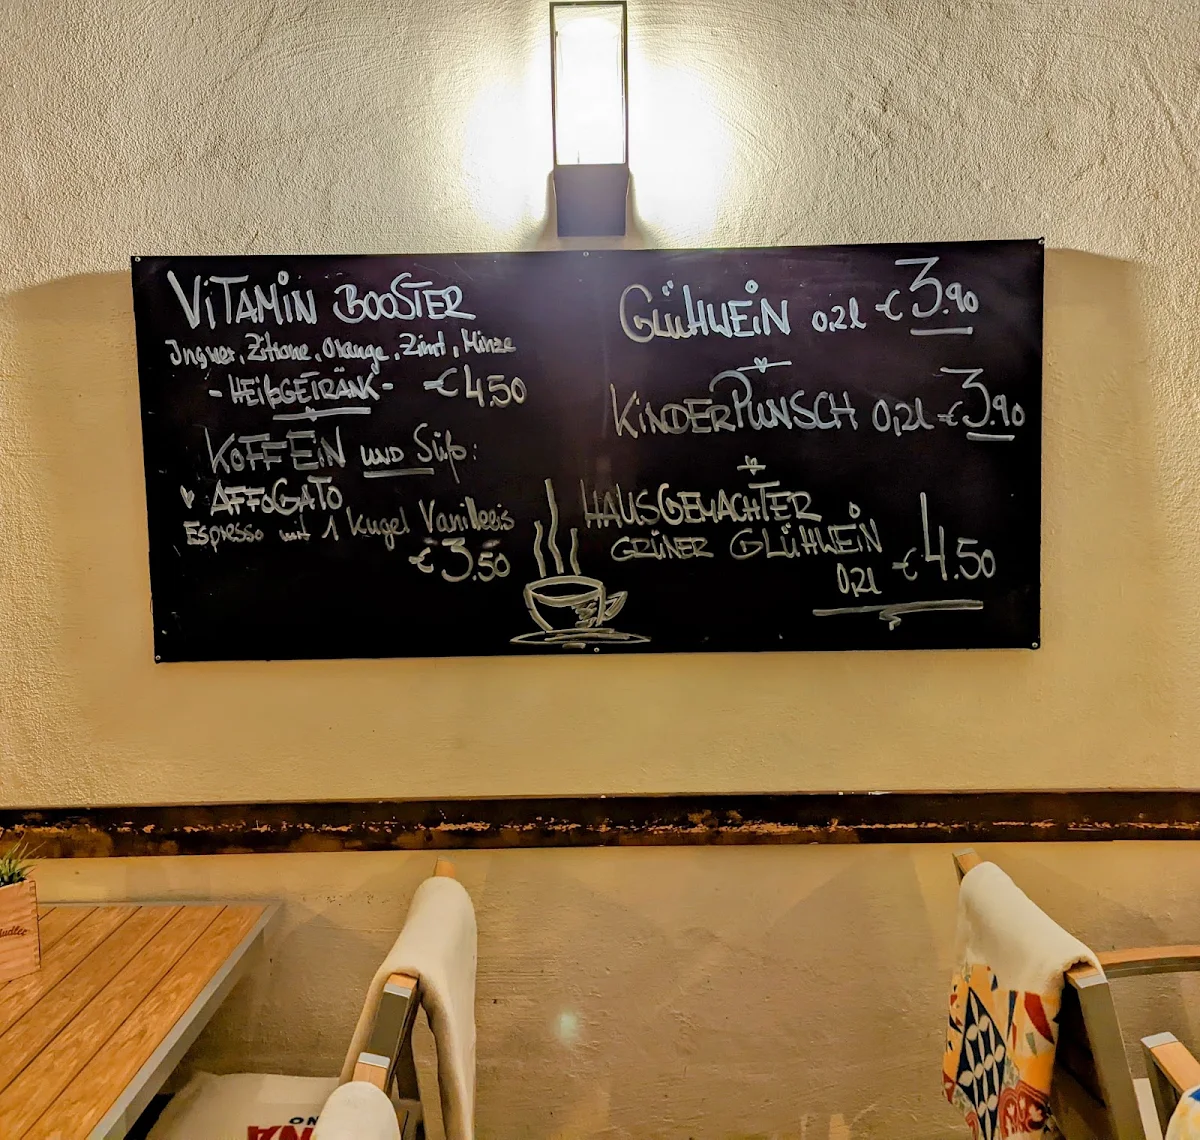 ViTAMiN BOOSTER
Ingwer, Zitrone, Orange, Zimt, Minze
- HEIßGETRÄNK - € 4.50
KOFFEiN UND Süß:
AFFOGATO
Espresso mit 1 Kugel Vanilleeis
€ 3.50
GLÜHWEiN 0,2l € 3.90
KiNDERPUNSCH 0,2l € 3.90
HAUSGEMACHTER
GRÜNER GLÜHWEiN
0,2l € 4.50